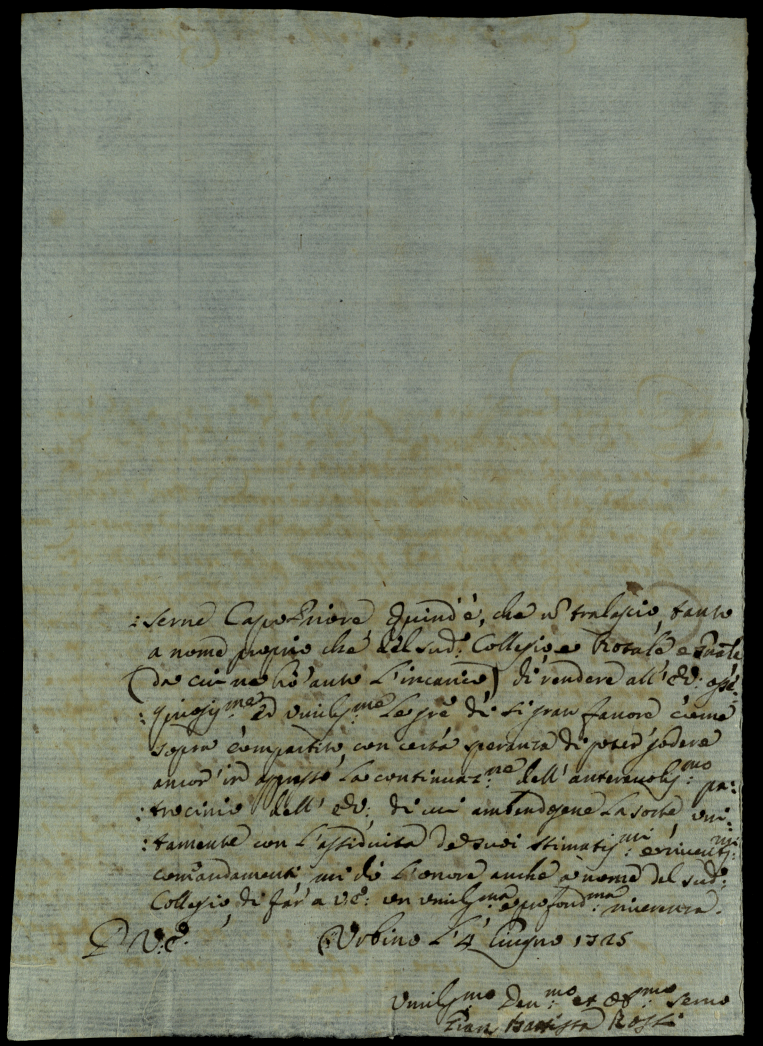 :serne Capo Priore Quind'è, che nõ tralascio, tanto
a nome proprio che del sud: Collegio e Rotale e
(da cui ne hò auto l'incarico) di rendere all' Ec: osse:
:quiosis.me ed umilis.me le grẽ di si gran fauore come
sopra compartito con certa speranza di poter godere
ancor' in appresso la continuaz.ne dell' autereuolis:mo pa:
:trocinio dell' E.V: di cui ambendone la sorte uni:
:tamente con l'assiduità de suoi stimatis:mi e riueriti:mi
comandamenti mi dò l'onore anche à nome del sud:
Collegio di far' a V.E: un umilis.ma e profond.ma riuerenza.
D. V.E. Urbino li 4 Giugno 1725
Umilis.mo Deu.mo et Ob.mo Seruo
Gian Battista Rossi